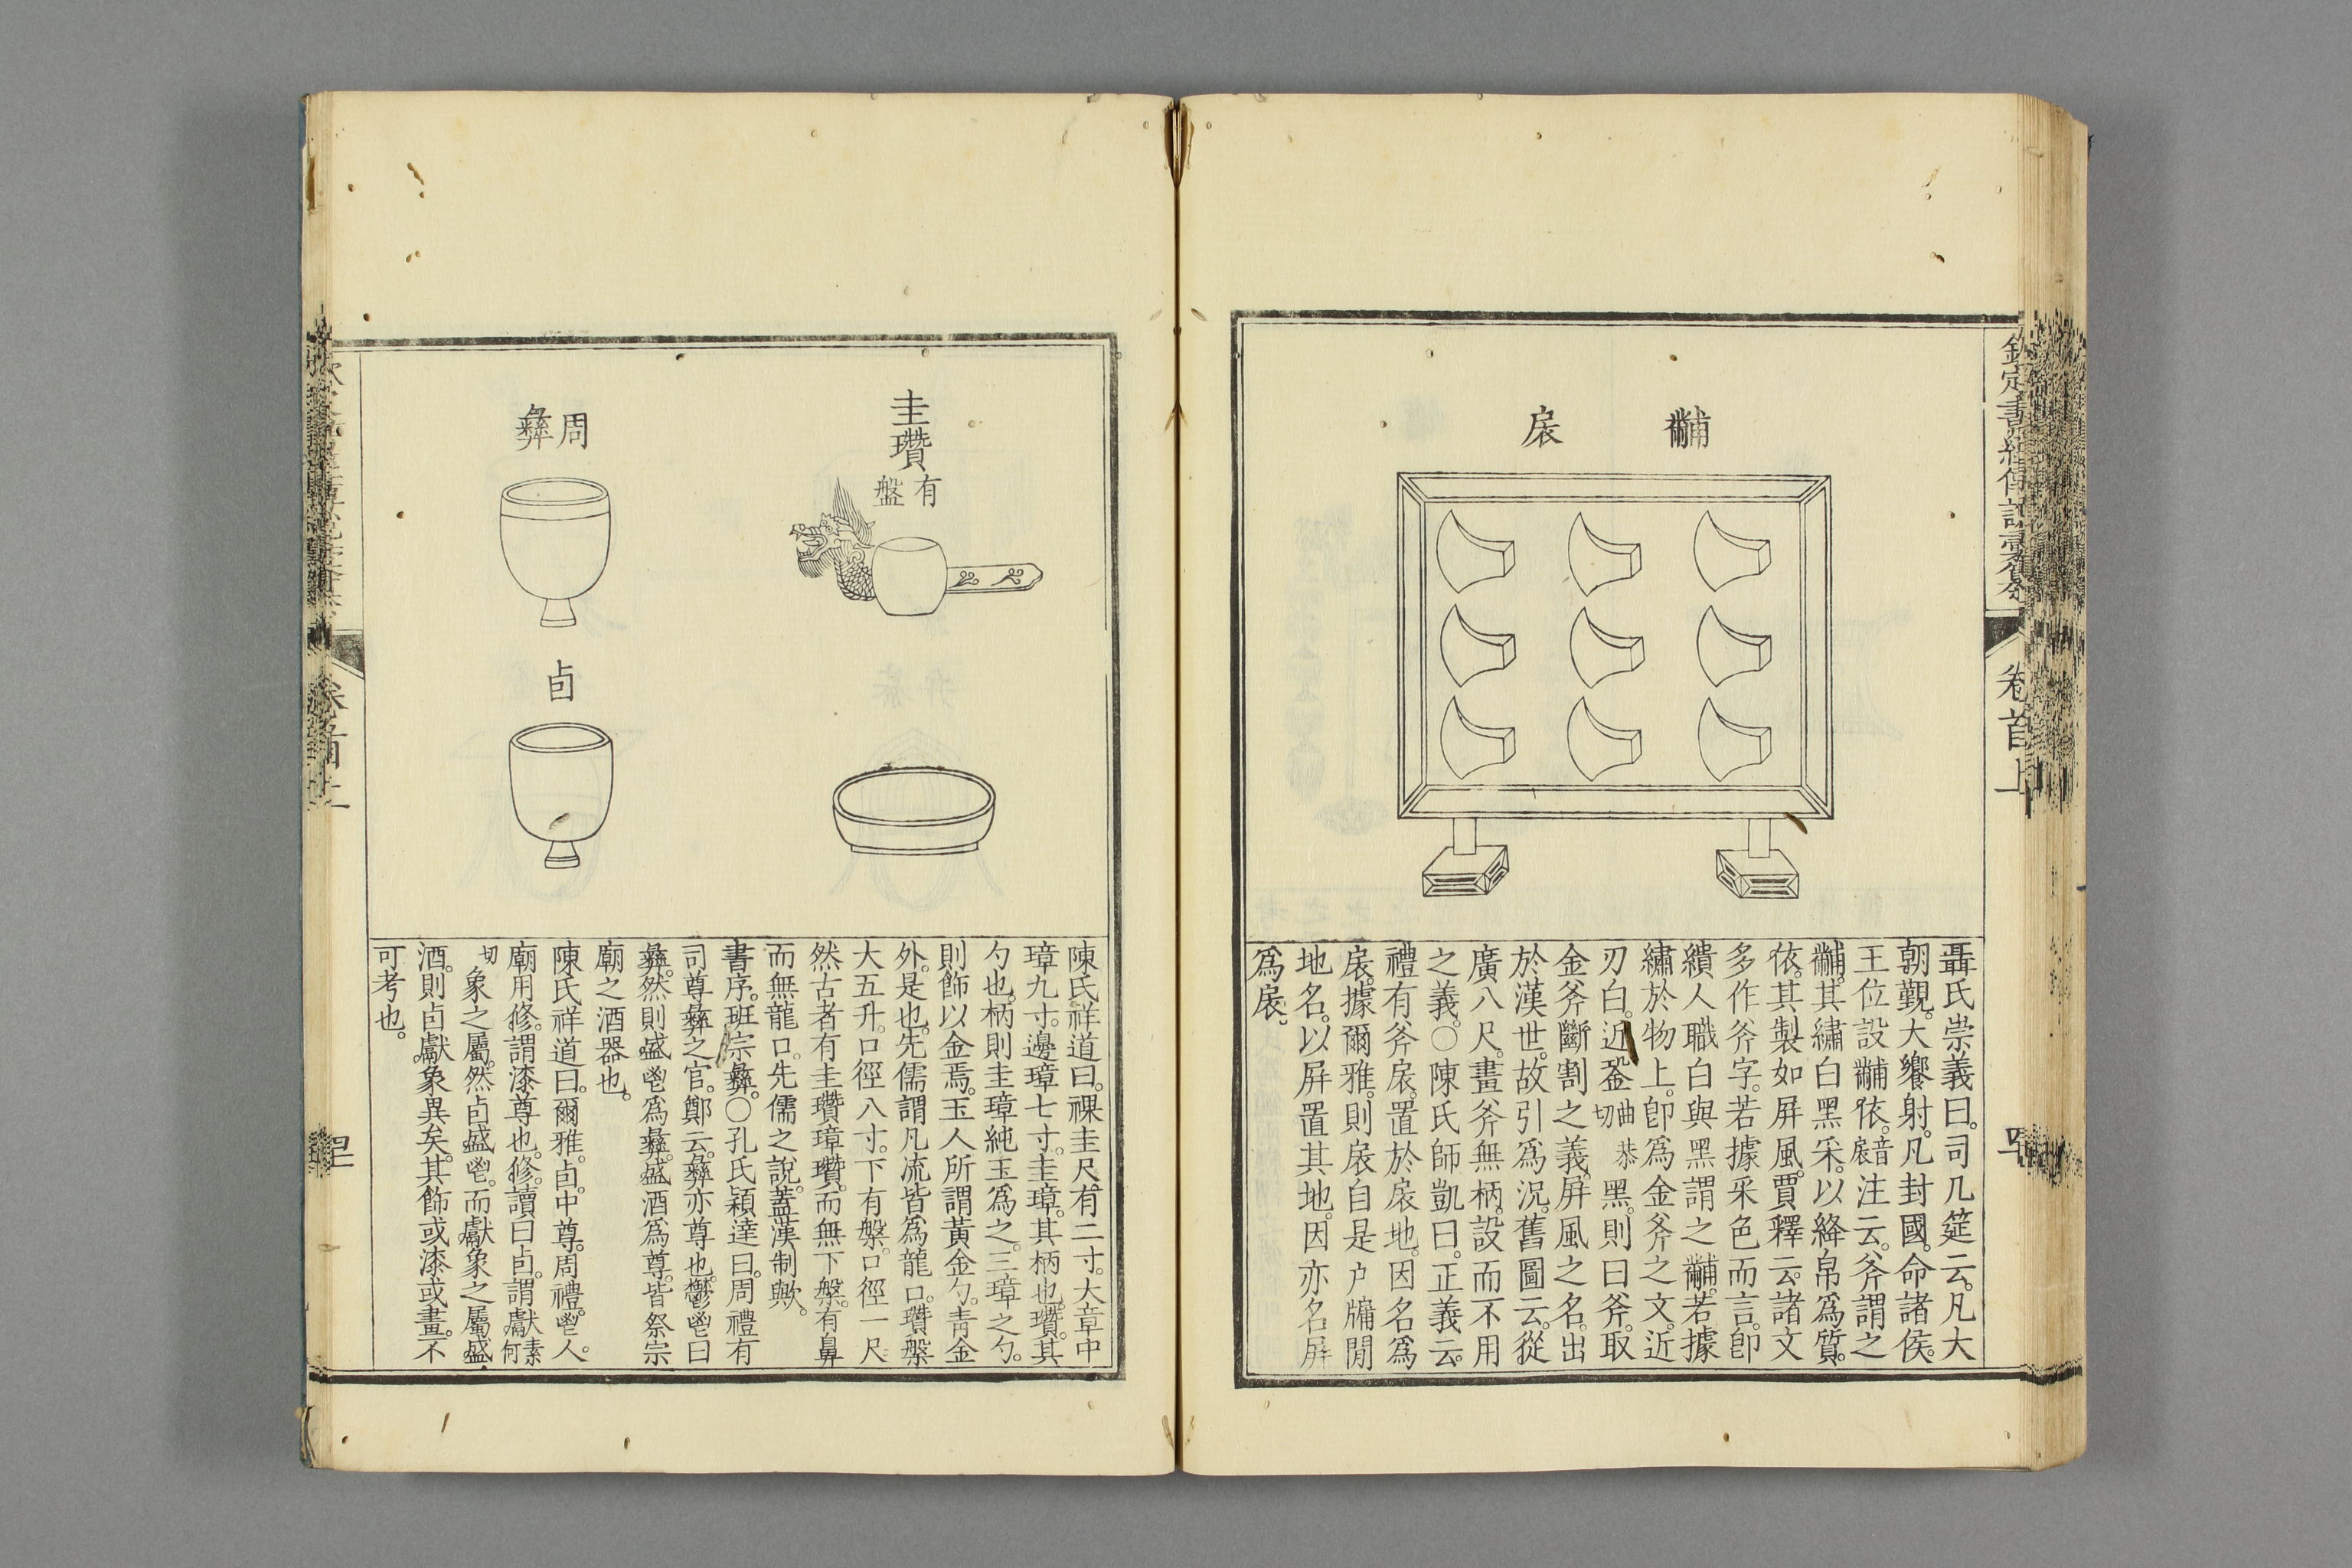 欽定書經傳說彙纂
卷首上
黼
扆
聶氏崇義曰。司几筵云。凡大
朝覲。大饗射。凡封國。命諸侯。
王位設黼依。音扆注云。斧謂之
黼。其繡白黑采。以絳帛為質。
依。其製如屏風。賈釋云。諸文
多作斧字。若據采色而言。卽
繢人職白與黑謂之黼。若據
繡於物上。卽為金斧之文。近
刃白。近銎曲恭切黑。則曰斧。取
金斧斷割之義。屏風之名。出
於漢世。故引為況。舊圖云。從
廣八尺。畫斧無柄。設而不用
之義。○陳氏師凱曰。正義云。
禮有斧扆。置於扆地。因名為
扆。據爾雅。則扆自是户牖閒
地名。以屏置其地。因亦名屏
為扆。
圭瓚
有盤
周彝
卣
陳氏祥道曰。祼圭尺有二寸。大章中
璋九寸。邊璋七寸。圭璋。其柄也。瓚。其
勺也。柄則圭璋純玉為之。三璋之勺。
則飾以金焉。玉人所謂黃金勺。青金
外。是也。先儒謂凡流皆為龍口。瓚槃
大五升。口徑八寸。下有槃。口徑一尺
然古者有圭瓚璋瓚。而無下槃。有鼻
而無龍口。先儒之說。蓋漢制歟。
書序。班宗彝。○孔氏穎達曰。周禮有
司尊彝之官。鄭云。彝亦尊也。鬱鬯曰
彝。然則盛鬯為彝。盛酒為尊。皆祭宗
廟之酒器也。
陳氏祥道曰。爾雅。卣。中尊。周禮。鬯人。
廟用修。謂漆尊也。修。讀曰卣。謂獻素何
切象之屬。然卣盛鬯。而獻象之屬盛
酒。則卣獻象異矣。其飾或漆或畫。不
可考也。
卷首上